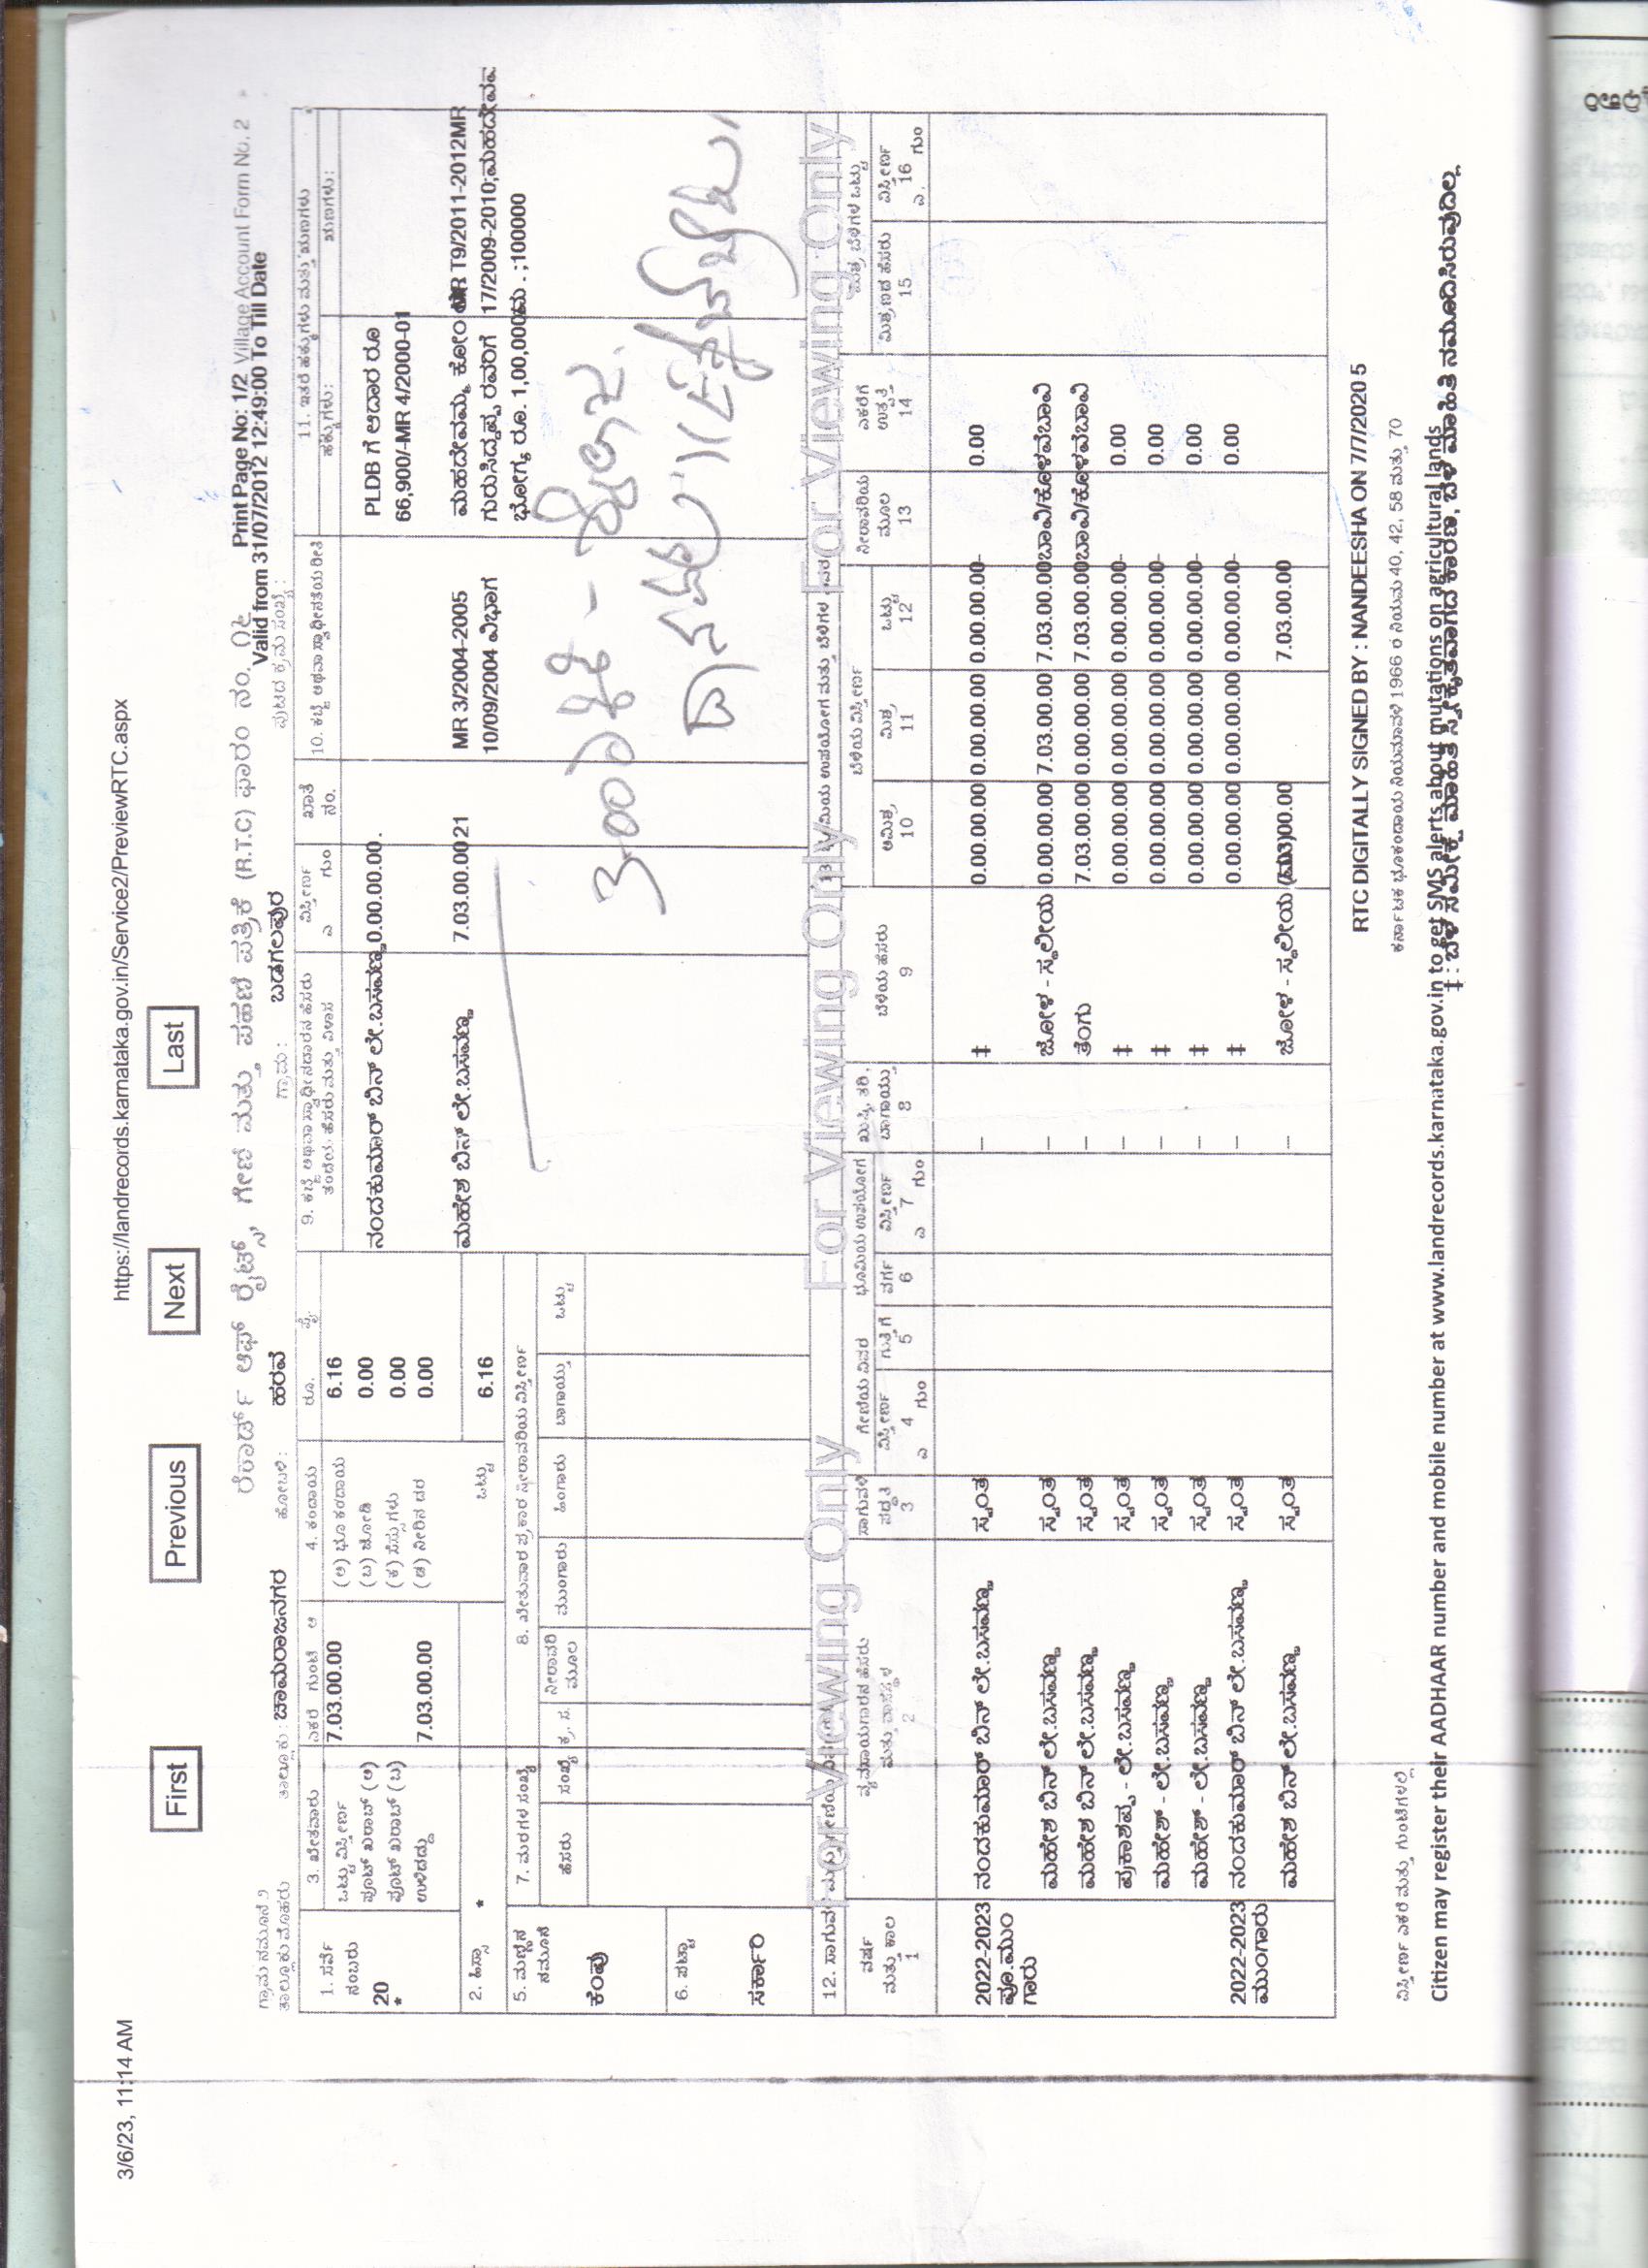 3/6/23, 11:14 AM
https://landrecords.karnataka.gov.in/Service2/PreviewRTC.aspx
First Previous Next Last
ಗ್ರಾಮ ನಮೂನೆ ೨
ರೆಕಾರ್ಡ್ ಆಫ್ ರೈಟ್ಸ್, ಗೇಣಿ ಮತ್ತು ಪಹಣಿ ಪತ್ರಿಕೆ (R.T.C) ಫಾರಂ ನಂ. ೧೬
Print Page No: 1/2 Village Account Form No. 2
Valid from 31/07/2012 12:49:00 To Till Date
ತಾಲ್ಲೂಕು : ಚಾಮರಾಜನಗರ ಹೋಬಳಿ : ಹರವೆ ಗ್ರಾಮ : ಬಡಗಲಪುರ ಪುಟದ ಕ್ರಮ ಸಂಖ್ಯೆ :
1. ಸರ್ವೆ ನಂಬರು
20
*
2. ಹಿಸ್ಸಾ *
3. ಖೇತವಾರು ಎಕರೆ ಗುಂಟೆ ಆ
ಒಟ್ಟು ವಿಸ್ತೀರ್ಣ 7.03.00.00
ಫೂಟ್ ಖರಾಬ್ (ಅ)
ಫೂಟ್ ಖರಾಬ್ (ಬ)
ಉಳಿದದ್ದು 7.03.00.00
4. ಕಂದಾಯ ರೂ. ಪೈ.
(ಅ) ಭೂ ಕಂದಾಯ 6.16
(ಬ) ಜೋಡಿ 0.00
(ಕ) ಸೆಸ್ಸುಗಳು 0.00
(ಡ) ನೀರಿನ ದರ 0.00
ಒಟ್ಟು 6.16
5. ಮಣ್ಣಿನ ನಮೂನೆ
ಕೆಂಪು
6. ಪಟ್ಟಾ
ಸರ್ಕಾರಿ
7. ಮರಗಳ ಸಂಖ್ಯೆ
ಹೆಸರು ಸಂಖ್ಯೆ
8. ಖೇತುವಾರ ಪ್ರಕಾರ ನೀರಾವರಿಯ ವಿಸ್ತೀರ್ಣ
ಕ್ರ. ಸ. ನೀರಾವರಿ ಮೂಲ ಮುಂಗಾರು ಹಿಂಗಾರು ಬಾಗಾಯ್ತು ಒಟ್ಟು
9. ಕಬ್ಜೆ ಅಥವಾ ಸ್ವಾಧೀನದಾರನ ಹೆಸರು ತಂದೆಯ ಹೆಸರು ಮತ್ತು ವಿಳಾಸ ಎ ವಿಸ್ತೀರ್ಣ ಗುಂ ಖಾತೆ ನಂ.
10. ಕಬ್ಜೆ ಅಥವಾ ಸ್ವಾಧೀನತೆಯ ರೀತಿ
11. ಇತರೆ ಹಕ್ಕುಗಳು ಮತ್ತು ಋಣಗಳು
ಹಕ್ಕುಗಳು: ಋಣಗಳು:
ನಂದಕುಮಾರ್ ಬಿನ್ ಲೇ.ಬಸವಣ್ಣ 0.00.00.00. PLDB ಗೆ ಆಧಾರ ರೂ
66,900/-MR 4/2000-01
ಮಹೇಶ ಬಿನ್ ಲೇ.ಬಸವಣ್ಣ 7.03.00.00 21 MR 3/2004-2005 ಮಹದೇವಮ್ಮ ಕೋಂ MR T9/2011-2012MR
10/09/2004 ವಿಭಾಗ ಗುರುಸಿದ್ದಪ್ಪ ರವರಿಗೆ 17/2009-2010;ಮಹದೇವ
ಭೋಗ್ಯ ರೂ. 1,00,000 ;100000
For Viewing Only For Viewing Only For Viewing Only
ವರ್ಷ ಮತ್ತು ಕಾಲ 1
2
ಸಾಗುವಳಿ ಪದ್ಧತಿ 3
ಗೇಣಿಯ ವಿವರ
ವಿಸ್ತೀರ್ಣ ಎ 4 ಗುಂ ಗುತ್ತಿಗೆ 5
ಭೂಮಿಯ ಉಪಯೋಗ
ವರ್ಗ 6 ವಿಸ್ತೀರ್ಣ ಎ 7 ಗುಂ
ಖುಷ್ಕಿ, ತರಿ, ಬಾಗಾಯ್ತು 8
ಬೆಳೆಯ ಹೆಸರು 9
ಬೆಳೆಯ ವಿಸ್ತೀರ್ಣ
ಅಮಿಶ್ರ 10 ಮಿಶ್ರ 11 ಒಟ್ಟು 12
ನೀರಾವರಿಯ ಮೂಲ 13
ಎಕರೆಗೆ ಉತ್ಪತ್ತಿ 14
ಮಿಶ್ರ ಬೆಳೆಗಳ ಒಟ್ಟು
ಮಿಶ್ರಣದ ಹೆಸರು 15 ವಿಸ್ತೀರ್ಣ 16 ಎ. ಗುಂ
2022-2023 ನಂದಕುಮಾರ್ ಬಿನ್ ಲೇ.ಬಸವಣ್ಣ ಸ್ವಂತ ‡ 0.00.00.00 0.00.00.00 0.00.00.00 - 0.00
ಪೂ.ಮುಂಗಾರು
ಮಹೇಶ ಬಿನ್ ಲೇ.ಬಸವಣ್ಣ ಸ್ವಂತ - ಜೋಳ - ಸ್ಥಳೀಯ 0.00.00.00 7.03.00.00 7.03.00.00 ಬಾವಿ/ಕೊಳವೆಬಾವಿ
ಮಹೇಶ ಬಿನ್ ಲೇ.ಬಸವಣ್ಣ ಸ್ವಂತ - ತೆಂಗು 7.03.00.00 0.00.00.00 7.03.00.00 ಬಾವಿ/ಕೊಳವೆಬಾವಿ
ಪ್ರಕಾಶಪ್ಪ - ಲೇ.ಬಸವಣ್ಣ ಸ್ವಂತ - ‡ 0.00.00.00 0.00.00.00 0.00.00.00 - 0.00
ಮಹೇಶ್ - ಲೇ.ಬಸವಣ್ಣ ಸ್ವಂತ - ‡ 0.00.00.00 0.00.00.00 0.00.00.00 - 0.00
ಮಹೇಶ್ - ಲೇ.ಬಸವಣ್ಣ ಸ್ವಂತ - ‡ 0.00.00.00 0.00.00.00 0.00.00.00 - 0.00
2022-2023 ನಂದಕುಮಾರ್ ಬಿನ್ ಲೇ.ಬಸವಣ್ಣ ಸ್ವಂತ - ‡ 0.00.00.00 0.00.00.00 0.00.00.00 - 0.00
ಮುಂಗಾರು
ಮಹೇಶ ಬಿನ್ ಲೇ.ಬಸವಣ್ಣ ಸ್ವಂತ - ಜೋಳ - ಸ್ಥಳೀಯ 7.03.00.00
RTC DIGITALLY SIGNED BY : NANDEESHA ON 7/7/2020 5
ವಿಸ್ತೀರ್ಣ ಎಕರೆ ಮತ್ತು ಗುಂಟೆಗಳಲ್ಲಿ ಕರ್ನಾಟಕ ಭೂಕಂದಾಯ ನಿಯಮಾವಳಿ 1966 ರ ನಿಯಮ 40, 42, 58 ಮತ್ತು 70
Citizen may register their AADHAAR number and mobile number at www.landrecords.karnataka.gov.in to get SMS alerts about mutations on agricultural lands
‡ : ಬೆಳೆ ಸಮೀಕ್ಷೆ ಮಾಹಿತಿ ಸ್ವೀಕೃತವಾಗದ ಕಾರಣ, ಬೆಳೆ ಮಾಹಿತಿ ನಮೂದಿಸಿರುವುದಿಲ್ಲ